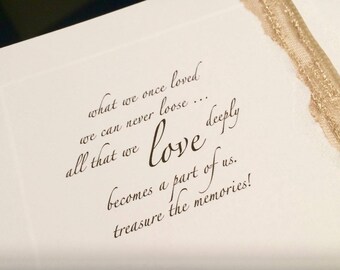 what we once loved
we can never loose ...
all that we love deeply
becomes a part of us.
treasure the memories!